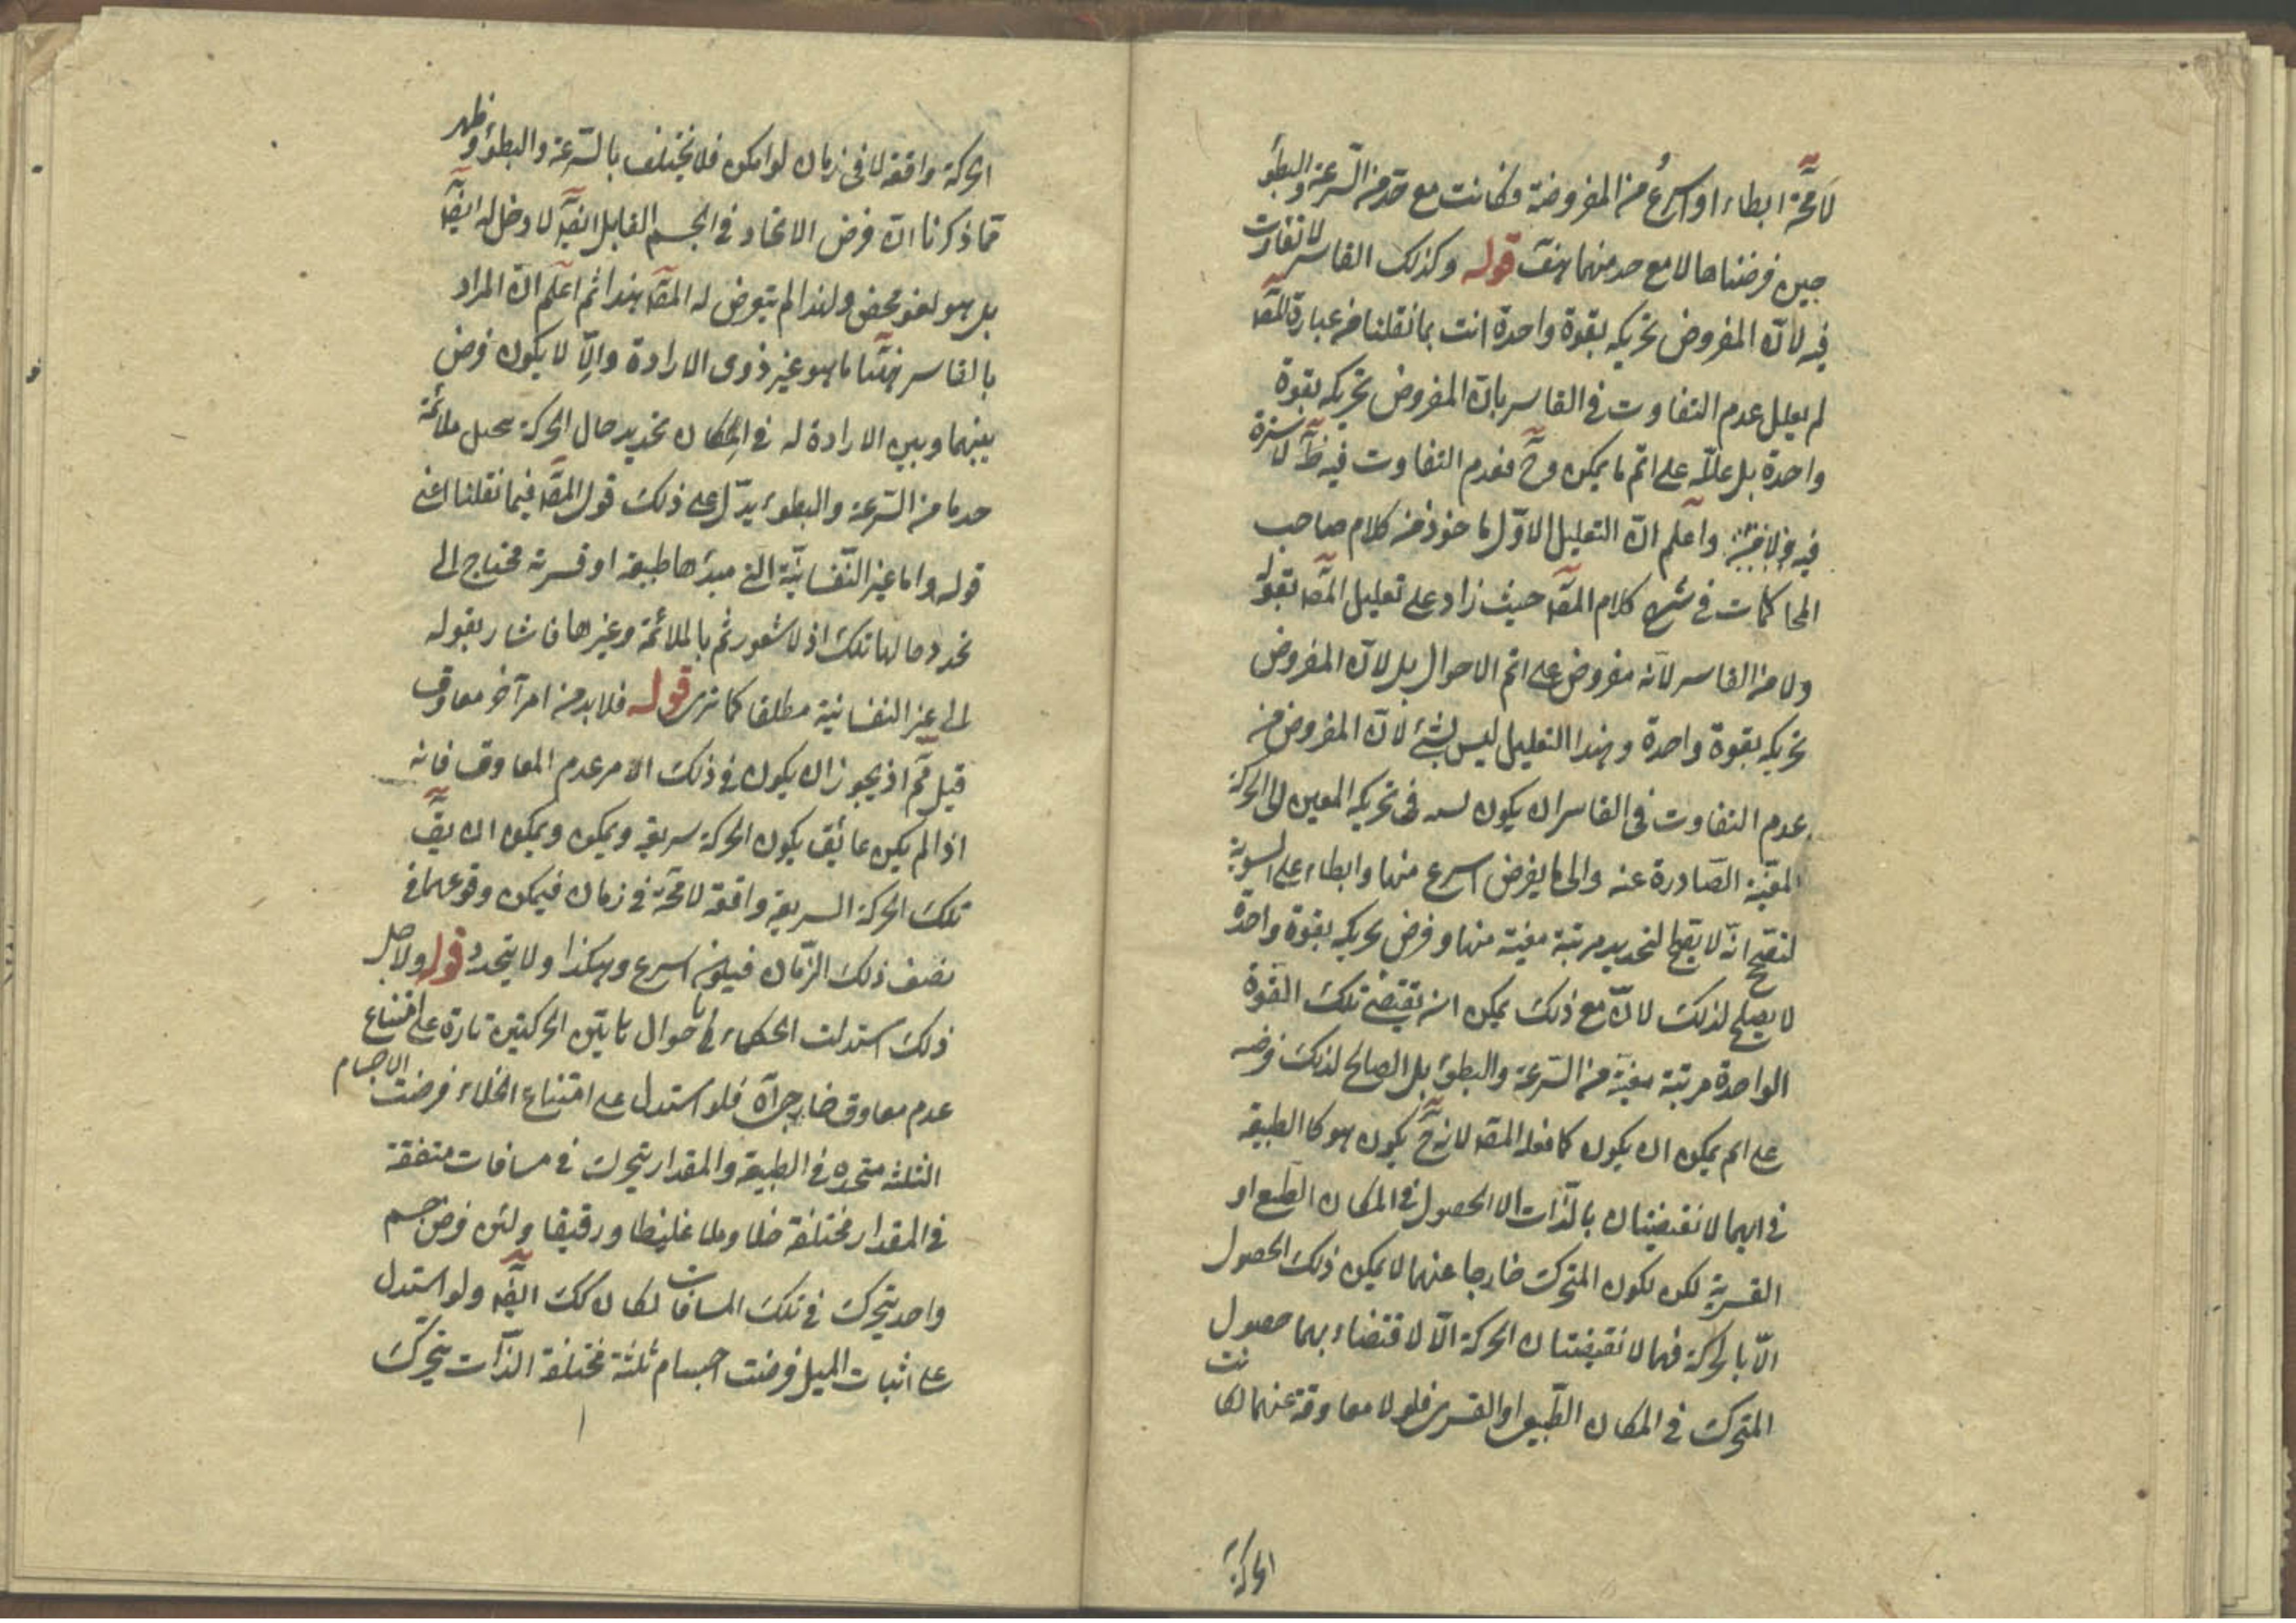 لامحة ابطاء او اسرع من المفروضة فكانت مع حد من السرعة والبطؤ
حين فرضناها لا مع حد منهما هف قوله وكذلك القاسر لا تفاوت
فيه لان المفروض تحريكه بقوة واحدة انت بما نقلنا من عبارة المص
لم يعلل عدم التفاوت في القاسر بان المفروض تحريكه بقوة
واحدة بل علله على اتم ما يمكن وح فعدم التفاوت فيه ظ لا سترة
فيه ولا خفية واعلم ان التعليل الاول ماخوذ من كلام صاحب
المحاكمات في شرح كلام المص حيث زاد على تعليل المص بقوله
ولا من القاسر لانه مفروض على اتم الاحوال بل لان المفروض
تحريكه بقوة واحدة وهذا التعليل ليس بشئ لان المفروض من
عدم التفاوت في القاسر ان يكون نسبة في تحريكه المعين الى الحركة
المعينة الصادرة عنه والى ما يفرض اسرع منها وابطاء على السوية
لتضح انه لا يصلح لتحديد مرتبة معينة منها وفرض تحريكه بقوة واحدة
لا يصلح لذلك لان مع ذلك يمكن ان تقتضى تلك القوة
الواحدة مرتبة معينة من السرعة والبطؤ بل الصالح لذلك فرضه
على اتم يمكن ان يكون كما فعله المص لانه ح يكون هو كالطبيعة
في انهما لا تقتضيان بالذات الا الحصول في المكان الطبع او
القسرية لكن لكون المتحرك خارجا عنهما لا يمكن ذلك الحصول
الا بالحركة فهما لا تقتضيان الحركة الا لاقتضاء بهما حصول
المتحرك في المكان الطبيعى او القسرى فلو لا معاوقة عنهما لكانت
الحركة
الحركة واقعة لا في زمان لو امكن فلا تختلف بالسرعة والبطؤ وظهر
مما ذكرنا ان فرض الاتحاد في الجسم القابل ايضا لا دخل له ايضا
بل هو لغو محض ولهذا لم يتعرض له المص هذا ثم اعلم ان المراد
بالقاسر ههنا ما هو غير ذوى الارادة والا لا يكون فرض
بينهما وبين الارادة له في امكان تحديد حال الحركة بحيل ملائمة
حد ما من السرعة والبطوء يدل على ذلك قول المص فيما نقلنا اعنى
قوله واما غير النفسانية التى مبدئها طبيعة او قسرية محتاج الى
تحدد حالها تلك اذ لا شعور ثم بالملائمة وغيرها فاشار بقوله
الى غير النفسانية مطلقا كما ترى قوله فلا بد من امر آخر معاوق
قيل ثم اذ يجوز ان يكون في ذلك الامر عدم المعاوق فانه
اذا لم يكن عائق يكون الحركة سريعة ويمكن ويمكن ان يق
تلك الحركة السريعة واقعة لامحة في زمان فيمكن وقوعها في
نصف ذلك الزمان فيكون اسرع وهكذا ولا يتحدد قوله ولاجل
ذلك استدلت الحكماء باحوال هاتين الحركتين تارة على امتناع
عدم معاوق خارجى آه فلو استدل على امتناع الخلاء فرضت الاجسام
الثلثة متحدة في الطبيعة والمقدار يتحرك في مسافات متفقة
في المقدار مختلفة خلا وملا غليظا ورقيقا ولئن فرض جسم
واحد يتحرك في تلك المسافات لكان كك ايضا ولو استدل
على اثبات الميل فرضت اجسام ثلثة مختلفة الذات يتحرك